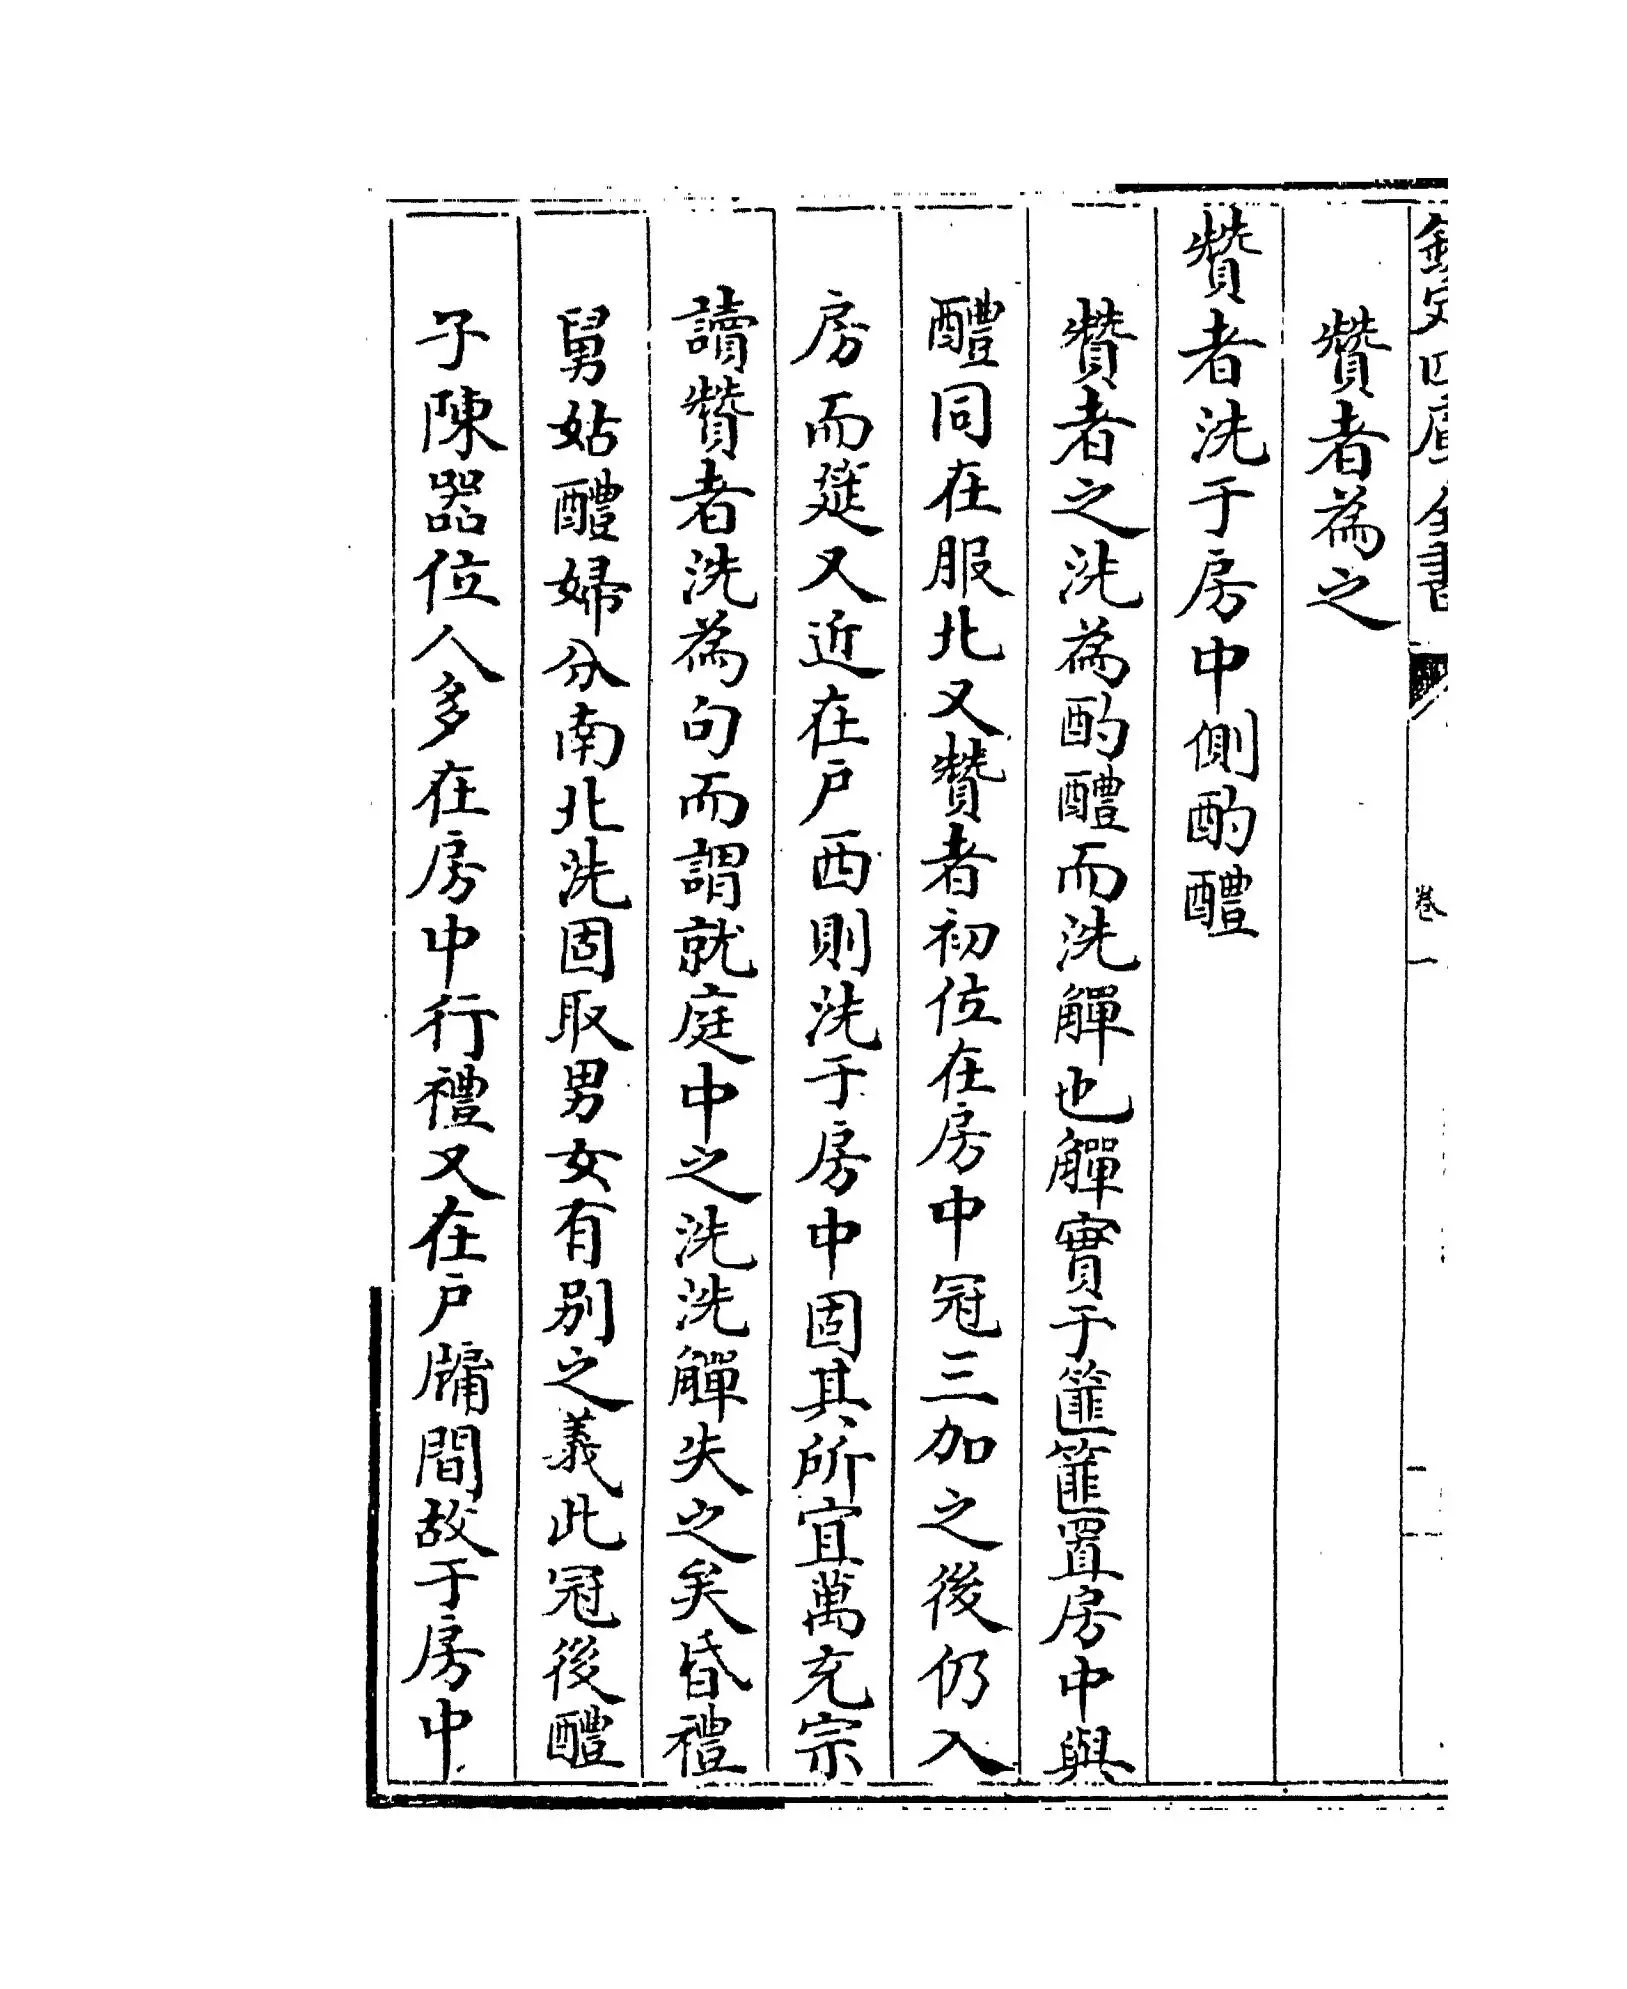 欽定四庫全書
卷一
贊者為之
贊者洗于房中側酌醴
贊者之洗為酌醴而洗觶也觶實于篚篚置房中與
醴同在服北又贊者初位在房中冠三加之後仍入
房而筵又近在戶西則洗于房中固其所宜萬充宗
讀贊者洗為句而謂就庭中之洗洗觶失之矣昏禮
舅姑醴婦分南北洗固取男女有別之義此冠後醴
子陳器位人多在房中行禮又在戶牖間故于房中